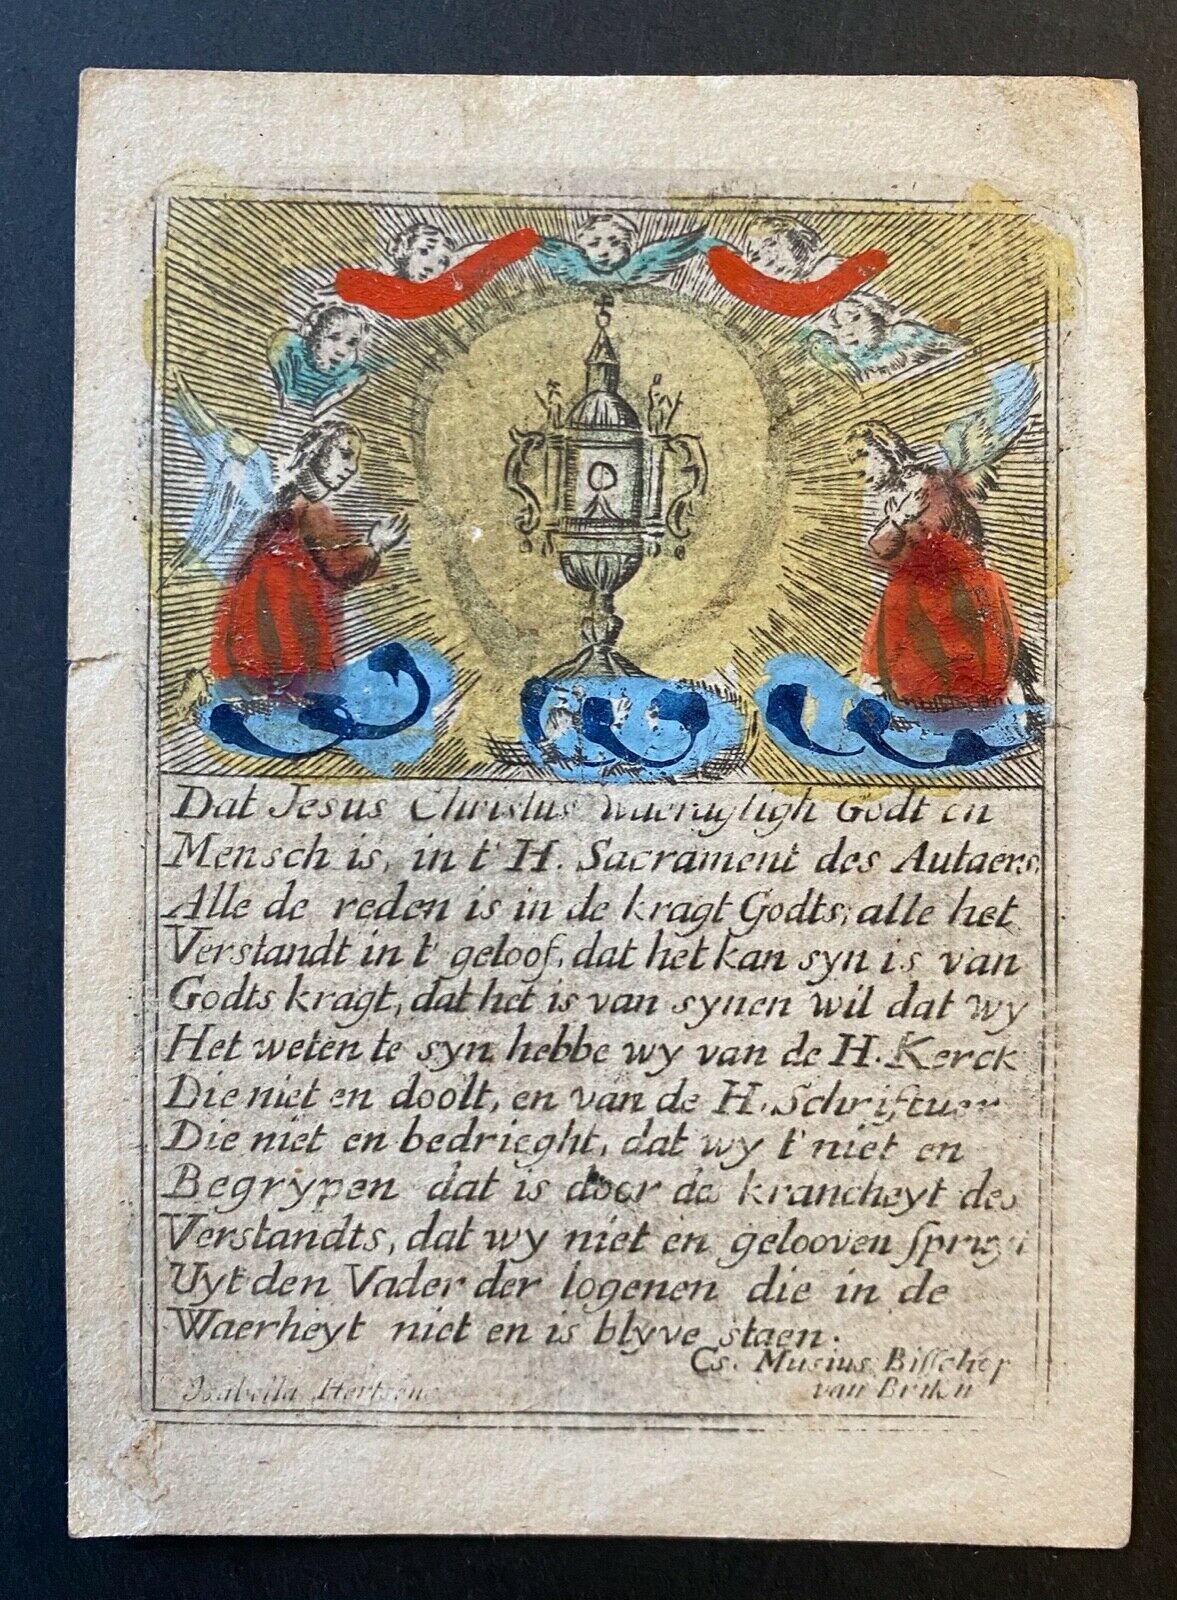 Dat Jesus Christus waeragtigh Godt en
Mensch is, in t' H. Sacrament des Autaers.
Alle de reden is in de kragt Godts, alle het
Verstandt in t' geloof, dat het kan syn is van
Godts kragt, dat het is van synen wil dat wy
Het weten te syn hebbe wy van de H. Kerck
Die niet en doolt, en van de H. Schriftuer
Die niet en bedrieght, dat wy t' niet en
Begrypen dat is door de krancheyt des
Verstandts, dat wy niet en gelooven spruyt
Uyt den Vader der logenen die in de
Waerheyt niet en is blyve staen.
Cs. Musius Bisschop
Isabella Hertsens
van